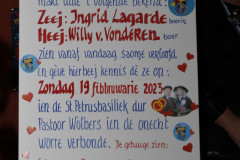 maakt ulle 't volgende bekend:
Zeej: Ingrid Lagarde boerin
Heej: Willy v. Vonderen boer
zien vanaf vandaag saome verloofd
en gève hierbeej kennis dè ze op:
Zondag 19 fibbruwarie 2023
ien de St Petrusbasiliek dur
Pastoor Wolbers ien de onecht
worre verbonde. De getuuge zien: